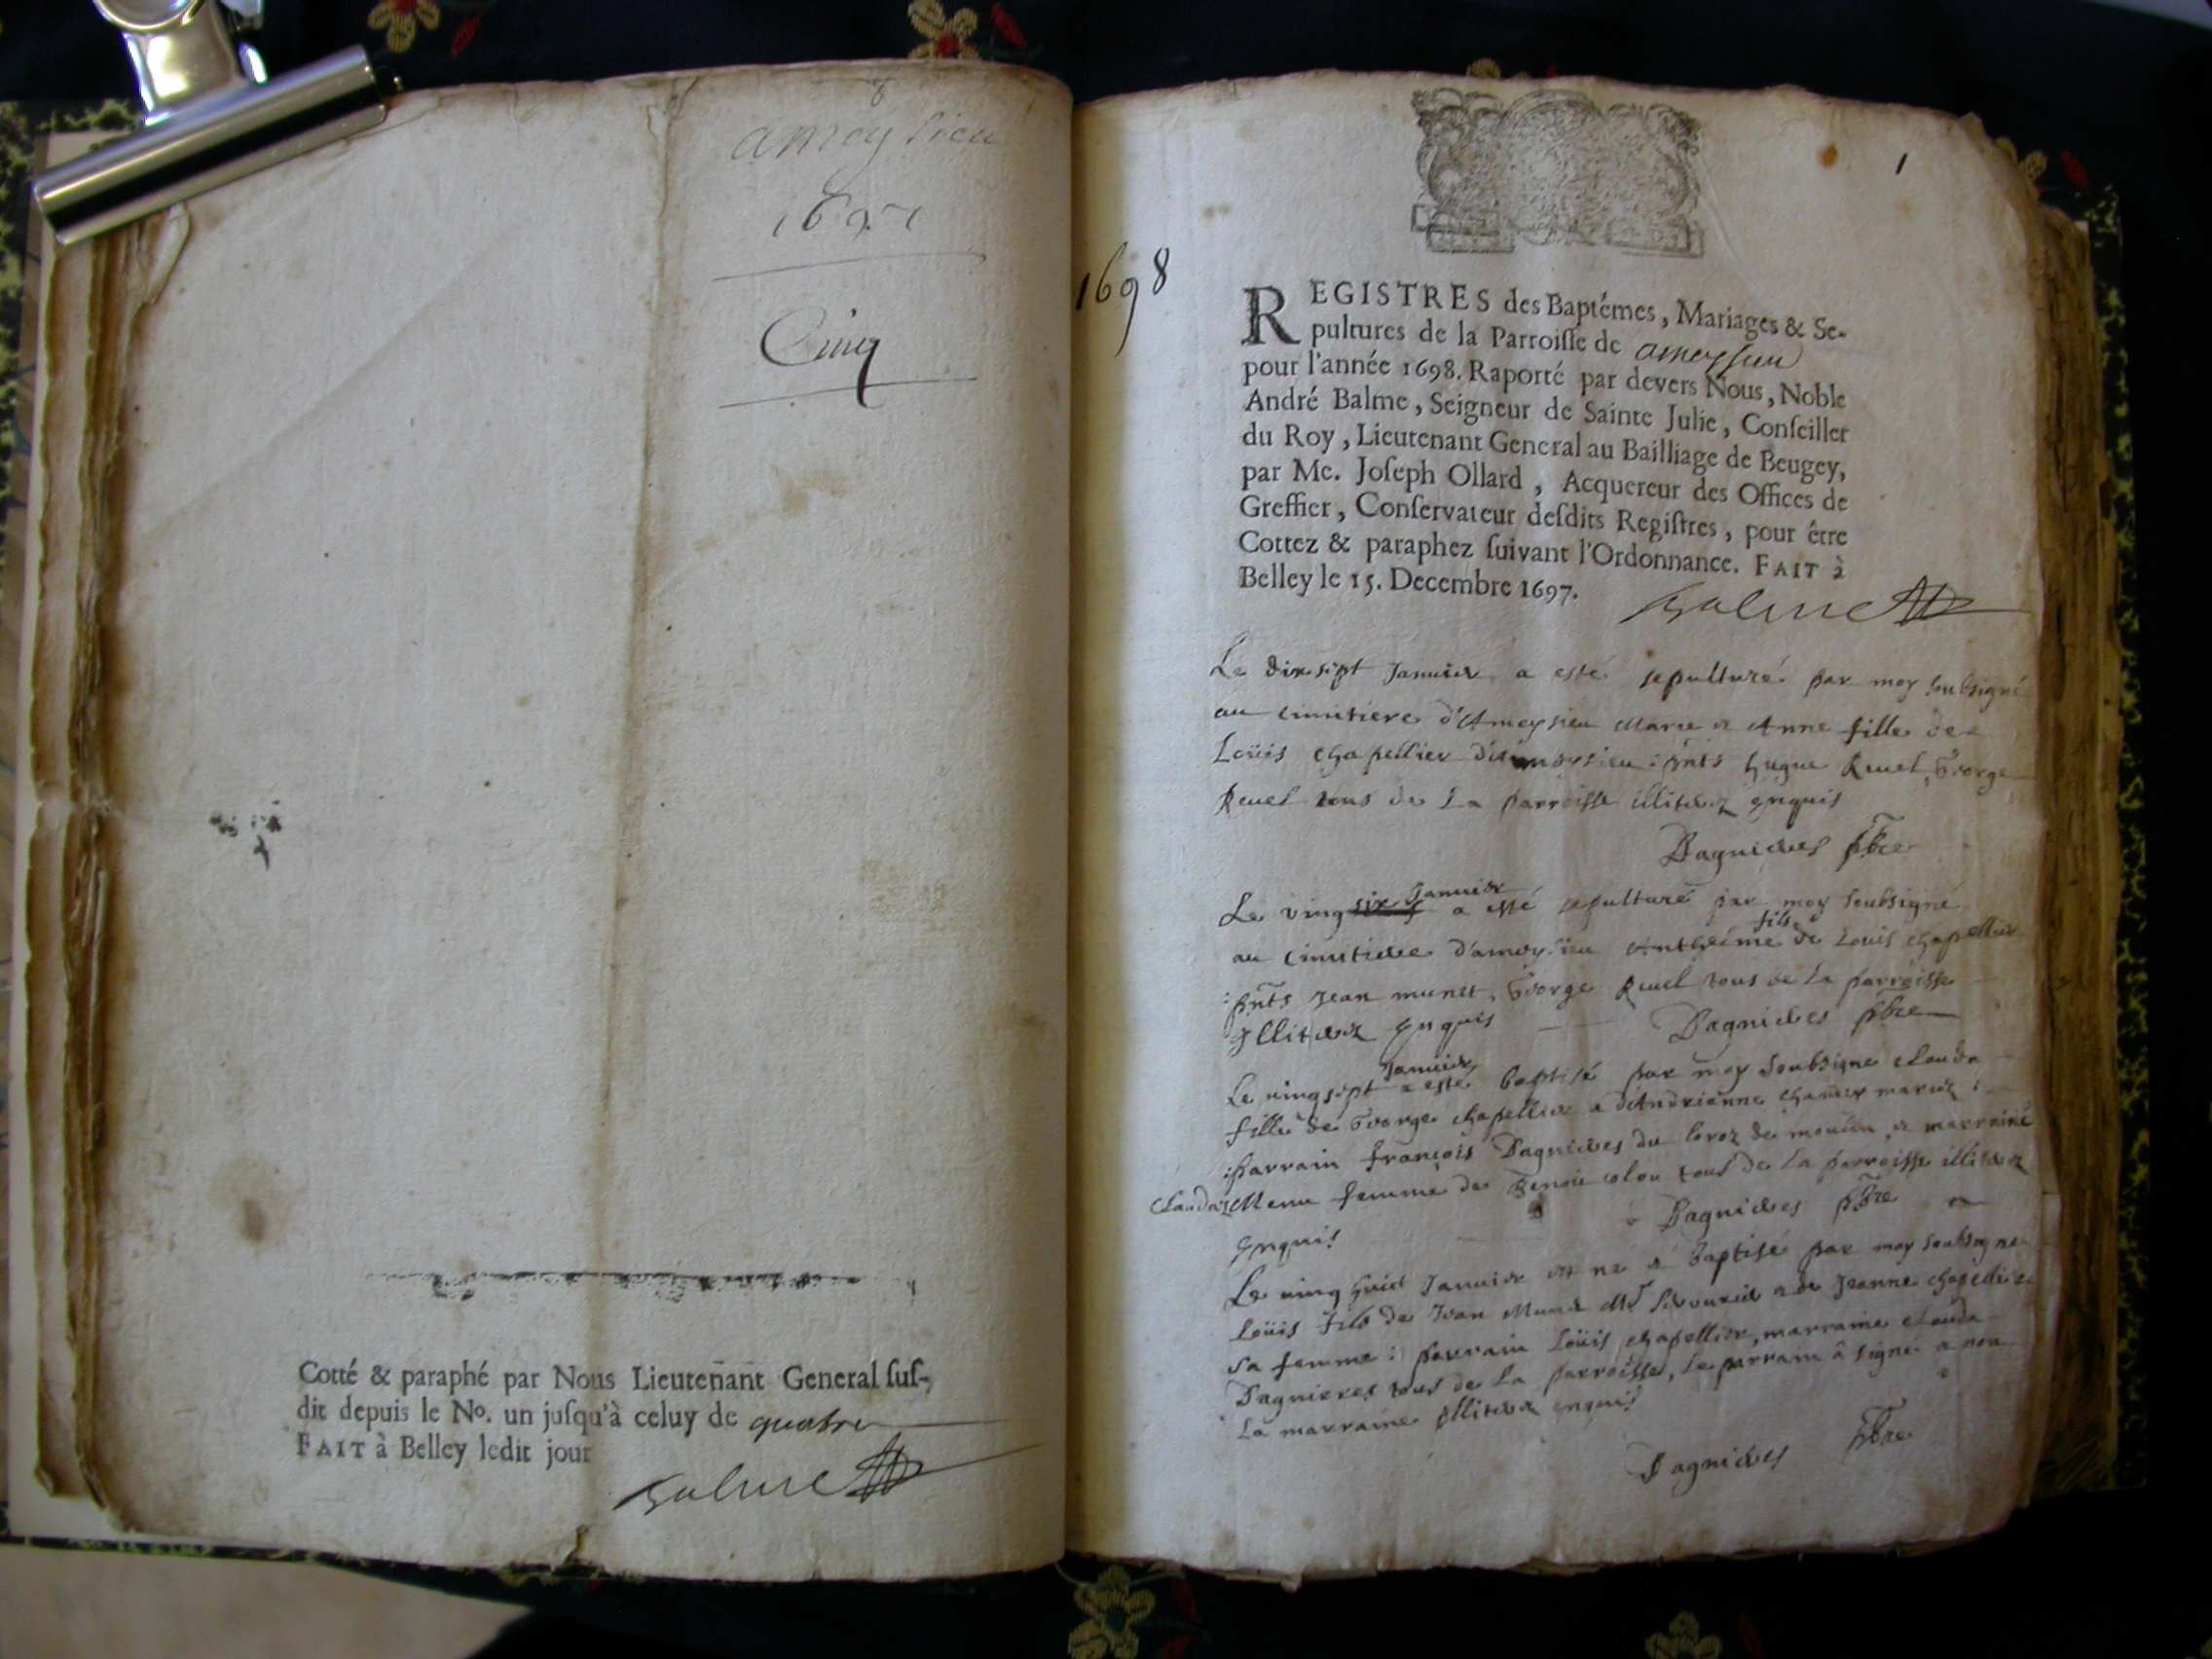 ameysieu
1697
Cinq
Cotté & paraphé par Nous Lieutenant General ſuſ-
dit depuis le No. un juſqu'à celuy de quatre
FAIT à Belley ledit jour
Balme
1
1698
REGISTRES des Baptémes, Mariages & Se-
pultures de la Parroiſſe de ameysieu
pour l'année 1698. Raporté par devers Nous, Noble
André Balme, Seigneur de Sainte Julie, Conſeiller
du Roy, Lieutenant General au Bailliage de Beugey,
par Me. Joſeph Ollard, Acquereur des Offices de
Greffier, Conſervateur deſdits Regiſtres, pour être
Cottez & paraphez ſuivant l'Ordonnance. FAIT à
Belley le 15. Decembre 1697.
Balme
Le dix sept Januier a esté sepulturé par moy soubsigné
au cimitiere d'Ameysieu Marie & Anne fille de
Loüis chapellier d'ameysieu : pnts hugue Reuel, George
Reuel tous de La parroisse illiterez enquis
Dagnieres pbre
Le ving six Januier a esté sepulturé par moy soubsigné
au cimitiere d'ameysieu Anthelme fils de Louis chapellier
: pnts Jean munet, George Reuel tous de La parroisse
Illiterez enquis Dagnieres pbre
Le ving sept Januier a esté baptisé par moy soubsigné Clauda
fille de George chapellier & d'Andrienne mariez :
: parrain françois Dagnieres du de moulin & marraine
Clauda femme de Benoit tous de La parroisse illiterez
enquis Dagnieres pbre
Le ving huict Januier est né & baptisé par moy soubsigné
Loüis fils de Jean & de Jeanne chapellier
sa femme : parrain Loüis chapellier, marraine Clauda
Dagnieres tous de La parroisse, Le parrain a signé & non
La marraine illiterez enquis
Dagnieres pbre